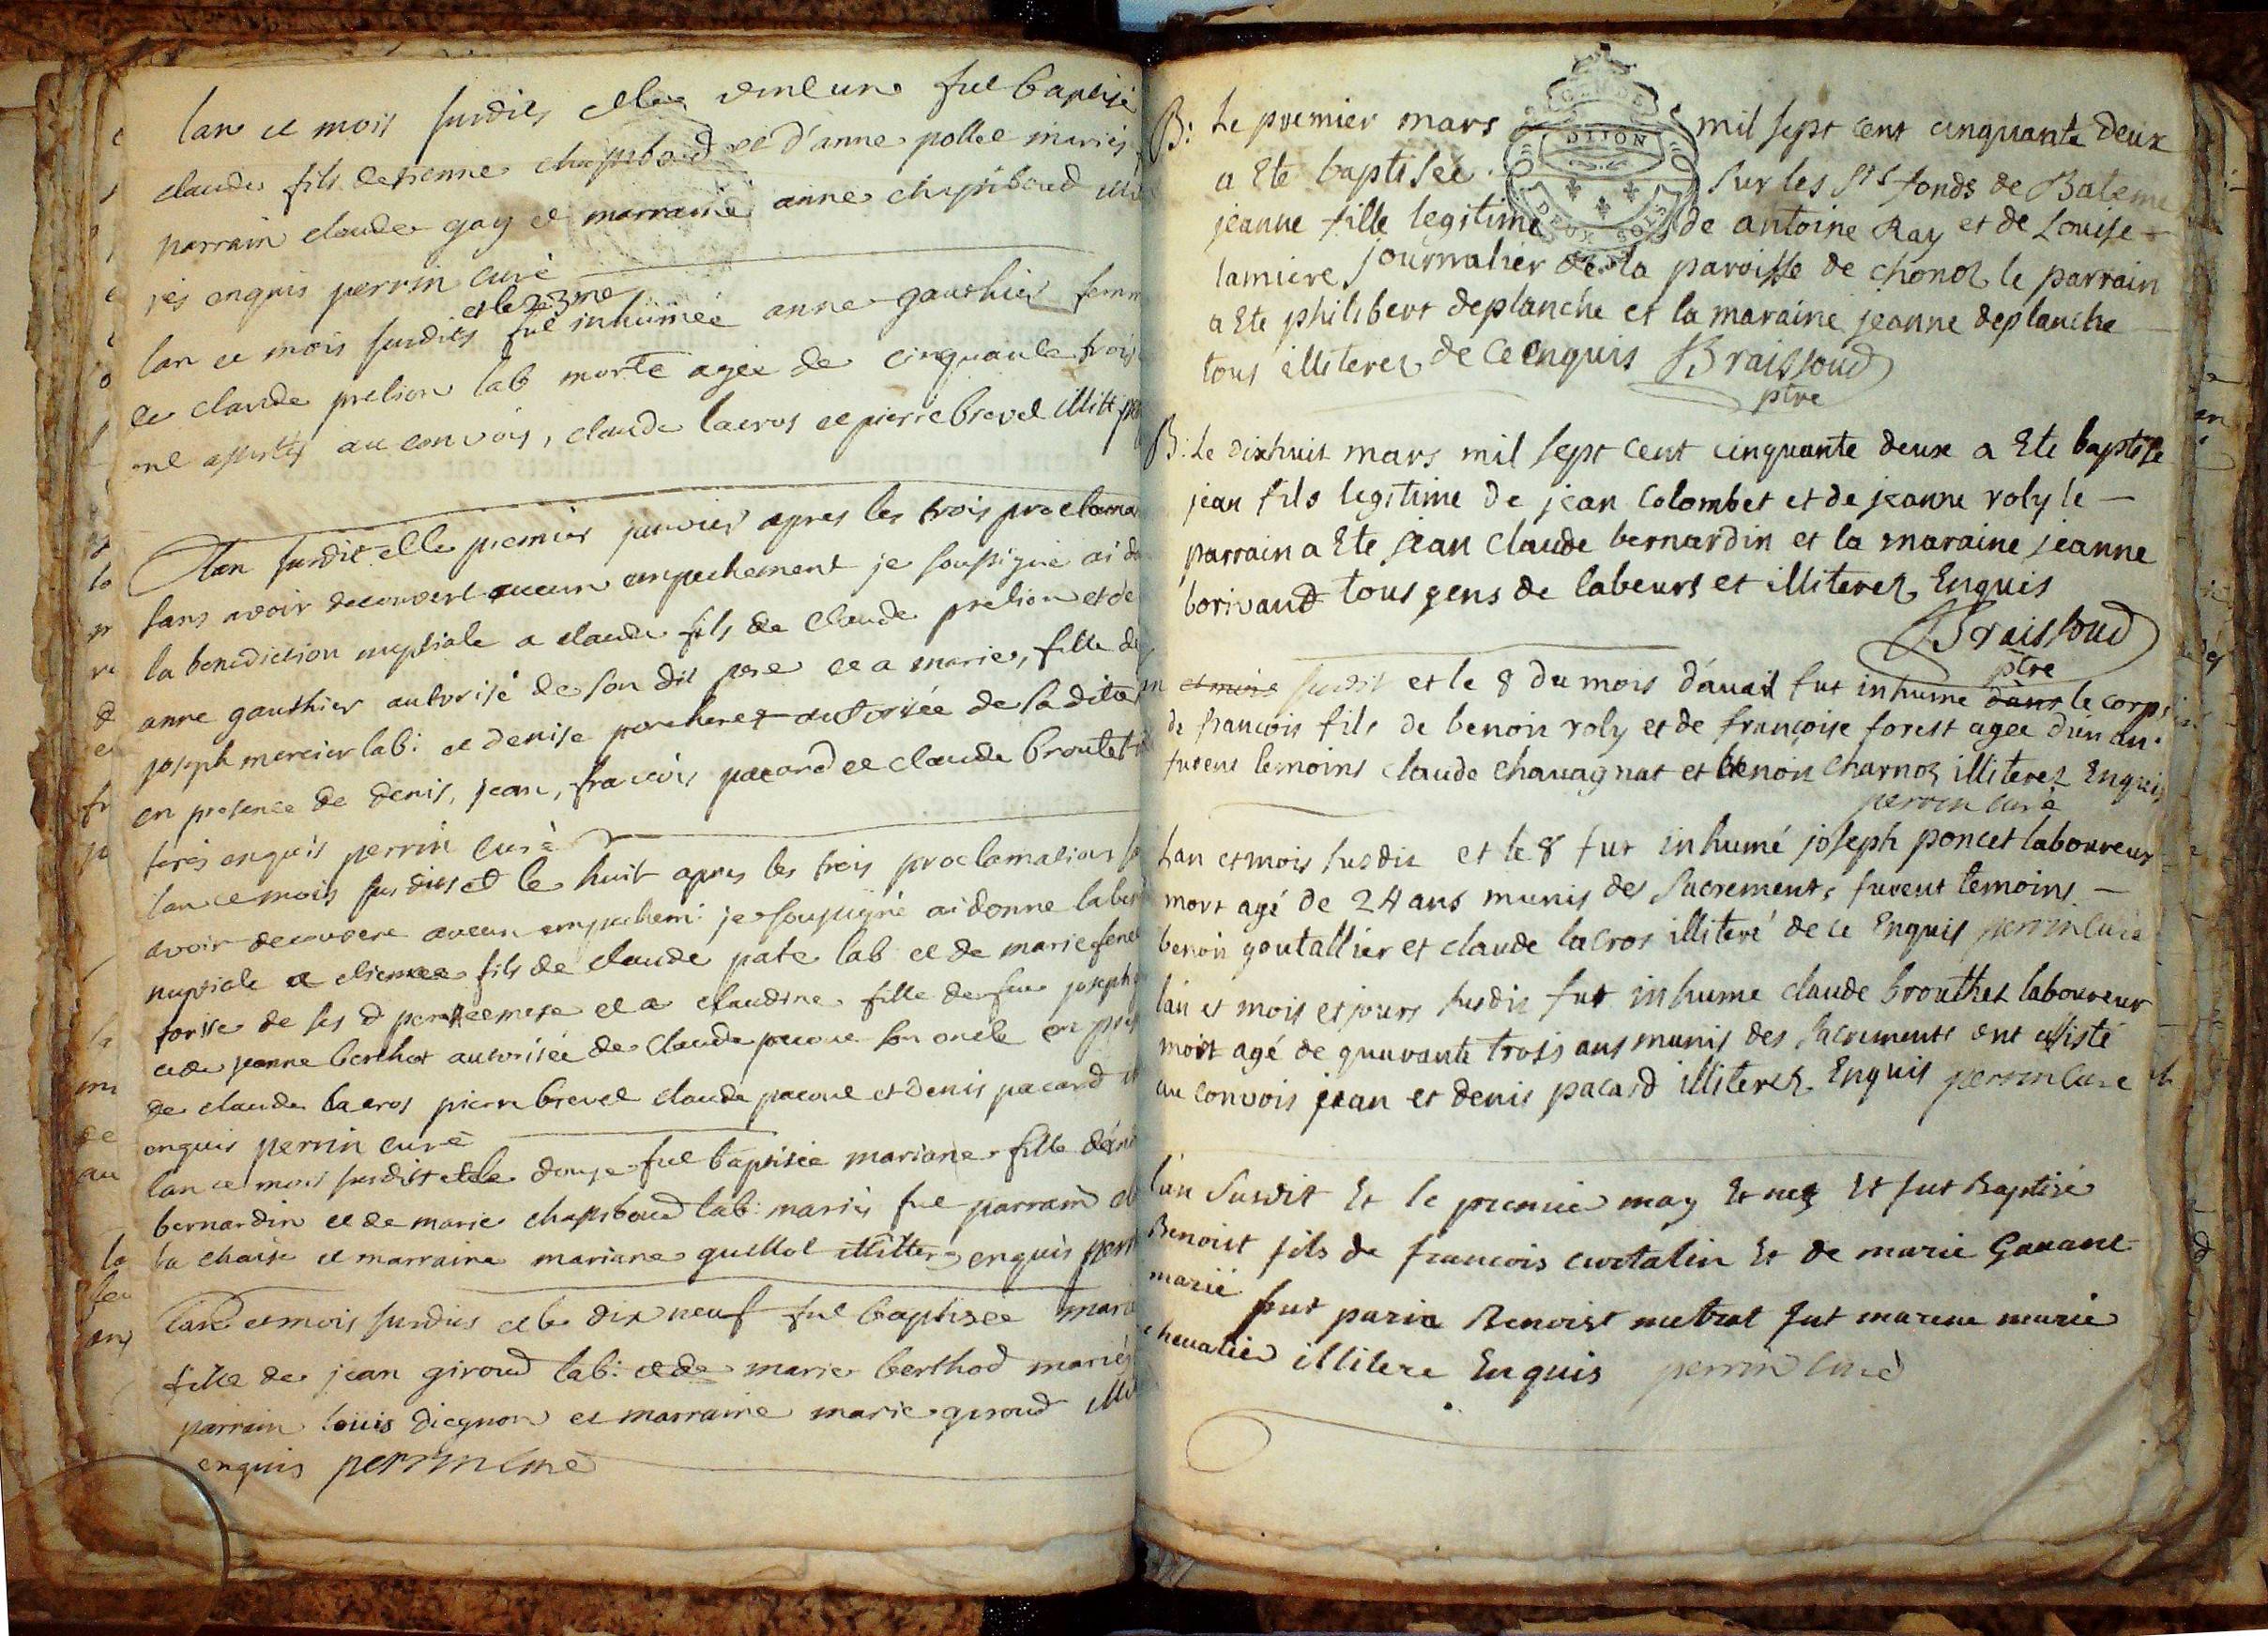 lan et mois susdits et le vint un fut baptisé
claude fils detienne chapsboud et d'anne pollet mariés
parrain claude gay et marraine anne chapsboud
rés enquis perrin curé
et le 23me
lan et mois susdits fut inhumée anne gauthier femm
de claude prelion lab morte agée de cinquante trois
ont assistés au convois, claude lacros et pierre brevet illitt
lan susdit et le premier janvier apres les trois proclama
sans avoir decouvert aucun empechement je soussigné ai do
la benediction nuptiale a claude fils de claude prelion et de
anne gauthier autorisé de son dit pere et a marie, fille de
joseph mercier lab: et denise porcheret autorisée de sa dite
en presence de denis, jean, francois pacard et claude broutet
terés enquis perrin curé
lan et mois susdits et le huit apres les trois proclamations
avoir decouvert aucun empechemt je soussigné ai donne la be
nuptiale a etienne fils de claude pate lab et de marie
torise de ses d pere et mere et a claudine fille de feu joseph
et de jeanne berthot autorisée de claude son oncle en
de claude lacros pierre brevet claude et denis pacard
enquis perrin curé
lan et mois susdit et le douze fut baptisée mariane fille
bernardin et de marie chapsboud lab: mariés fut parrain
la chaise et marraine mariane guillot illitter enquis perr
lan et mois susdits et le dix neuf fut baptisée marie
fille de jean giroud lab: et de marie berthod mariés
parrain louis diegnon et marraine marie giroud
enquis perrin curé
B: Le premier mars mil sept cent cinquante deux
a Ete baptisée sur les Sts fonds de Bateme
jeanne fille legitime de antoine Ray et de Louise
lamiere journalier de la paroisse de chonoz le parrain
a Ete philibert deplanche et la maraine jeanne deplanche
tous illiterez de ce enquis Braissoud
ptre
GENDE
DIJON
DEUX SOLS
B: Le dixhuit mars mil sept cent cinquante deux a Ete baptisé
jean fils legitime de jean Colombet et de jeanne roly le
parrain a Ete jean claude bernardin et la maraine jeanne
borivand tous gens de labeurs et illiterez Enquis
Braissoud
ptre
susdit et le 8 du mois d'avail fut inhume dans le corps
de francois fils de benoit roly et de françoise forest agee d'un an
furent temoins claude chavagnat et benoit Charnoz illiterez Enquis
perrin curé
Lan et mois susdit et le 8 fut inhumé joseph poncet laboureur
mort agé de 24 ans munis des Sacrements furent temoins
benoit goutallier et claude lacros illiteré de ce Enquis perrin curé
lan et mois et jours susdit fut inhume claude brouthet laboureur
mort agé de quarante trois ans munis des Sacrements ont assisté
au convois jean et denis pacard illiterez Enquis perrin curé
lan Susdit Et le premier may Et nez Et fut Baptisé
Benoist fils de francois curtalin Et de marie Gavant
marié fut parin Benoist metrat fut marene marie
chevalier illitere Enquis perrin curé